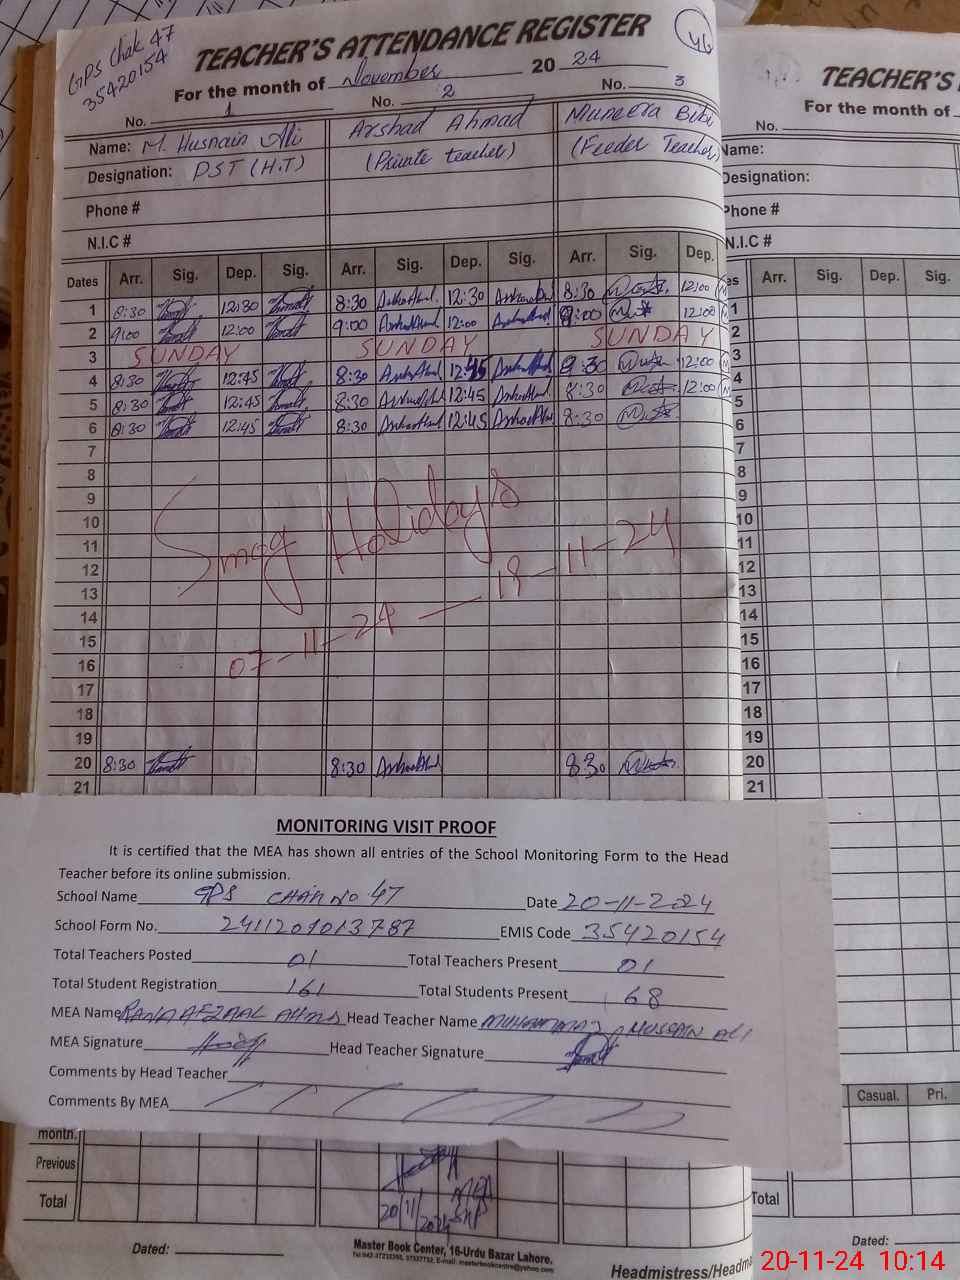 GPS Chak 47
35420154
46
TEACHER'S ATTENDANCE REGISTER
For the month of November 20 24
No. 1 No. 2 No. 3
Name: M. Husnain Ali Arshad Ahmad Muneera Bibi
Designation: PST (H.T) (Private teacher) (Feeder Teacher)
Phone #
N.I.C #
Dates Arr. Sig. Dep. Sig. Arr. Sig. Dep. Sig. Arr. Sig. Dep.
1 8:30 12:30 8:30 12:30 8:30 12:00
2 9:00 12:00 9:00 12:00 9:00 12:00
3 SUNDAY SUNDAY SUNDAY
4 8:30 12:45 8:30 12:45 8:30 12:00
5 8:30 12:45 8:30 12:45 8:30 12:00
6 8:30 12:45 8:30 12:45 8:30
7
8
9
10
11
12
13
14
15
16
17
18
19
Smog Holidays
07-11-24 — 19-11-24
20 8:30 8:30 830
21
MONITORING VISIT PROOF
It is certified that the MEA has shown all entries of the School Monitoring Form to the Head
Teacher before its online submission.
School Name GPS CHAK NO 47 Date 20-11-2024
School Form No. EMIS Code 35420154
Total Teachers Posted 01 Total Teachers Present 01
Total Student Registration 161 Total Students Present 68
MEA Name RANA AFZAAL AHMD Head Teacher Name MUHAMMAD HUSSAIN ALI
MEA Signature Head Teacher Signature
Comments by Head Teacher
Comments By MEA
month.
Previous
Total
MEA
20/11/2024
Dated:
Master Book Center, 16-Urdu Bazar Lahore.
Headmistress/Headm
TEACHER'S
For the month of
No.
Name:
Designation:
Phone #
N.I.C #
es Arr. Sig. Dep. Sig.
1
2
3
4
5
6
7
8
9
10
11
12
13
14
15
16
17
18
19
20
21
Casual. Pri.
Total
Dated:
20-11-24 10:14